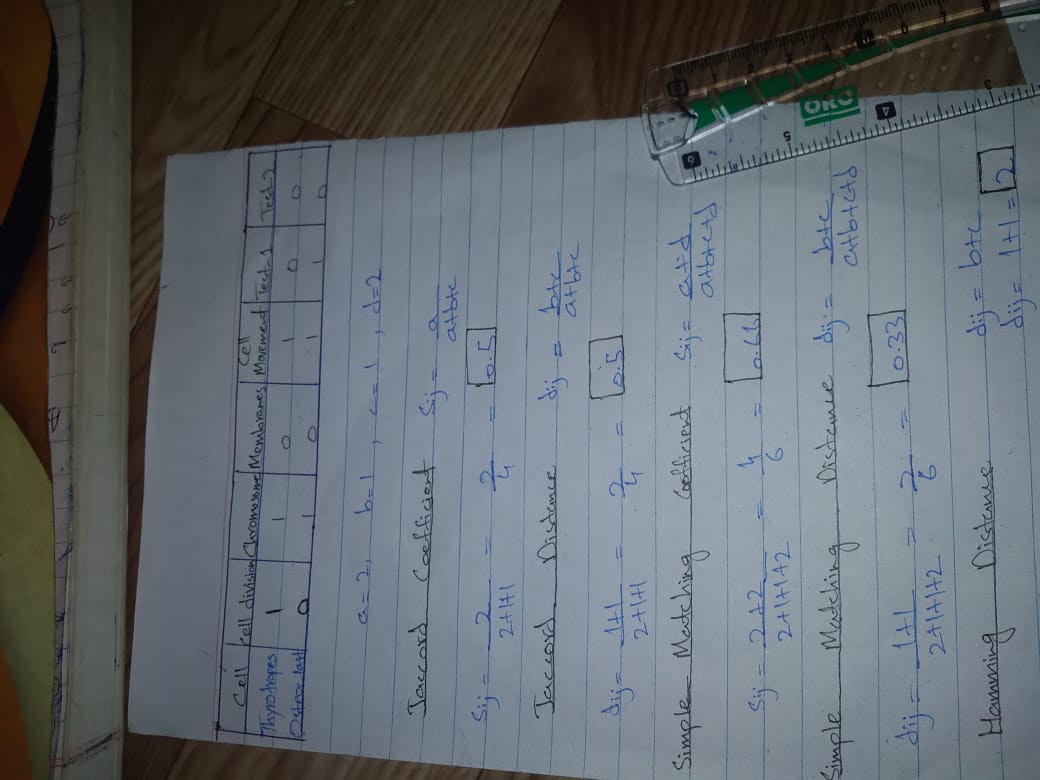 Cell | Cell division | Chromosome | Membranes | Cell Movement | Test-1 | Test-2
Thyrotropes | 1 | 1 | 0 | 1 | 0 | 0
Osteoclast | 0 | 1 | 0 | 1 | 1 | 0
a=2, b=1, c=1, d=2
Jaccord Coefficient Sij = a / a+b+c
Sij = 2 / 2+1+1 = 2/4 = 0.5
Jaccord Distance dij = b+c / a+b+c
dij = 1+1 / 2+1+1 = 2/4 = 0.5
Simple Matching Coefficient Sij = a+d / a+b+c+d
Sij = 2+2 / 2+1+1+2 = 4/6 = 0.66
Simple Matching Distance dij = b+c / a+b+c+d
dij = 1+1 / 2+1+1+2 = 2/6 = 0.33
Hamming Distance dij = b+c
dij = 1+1 = 2
ORO